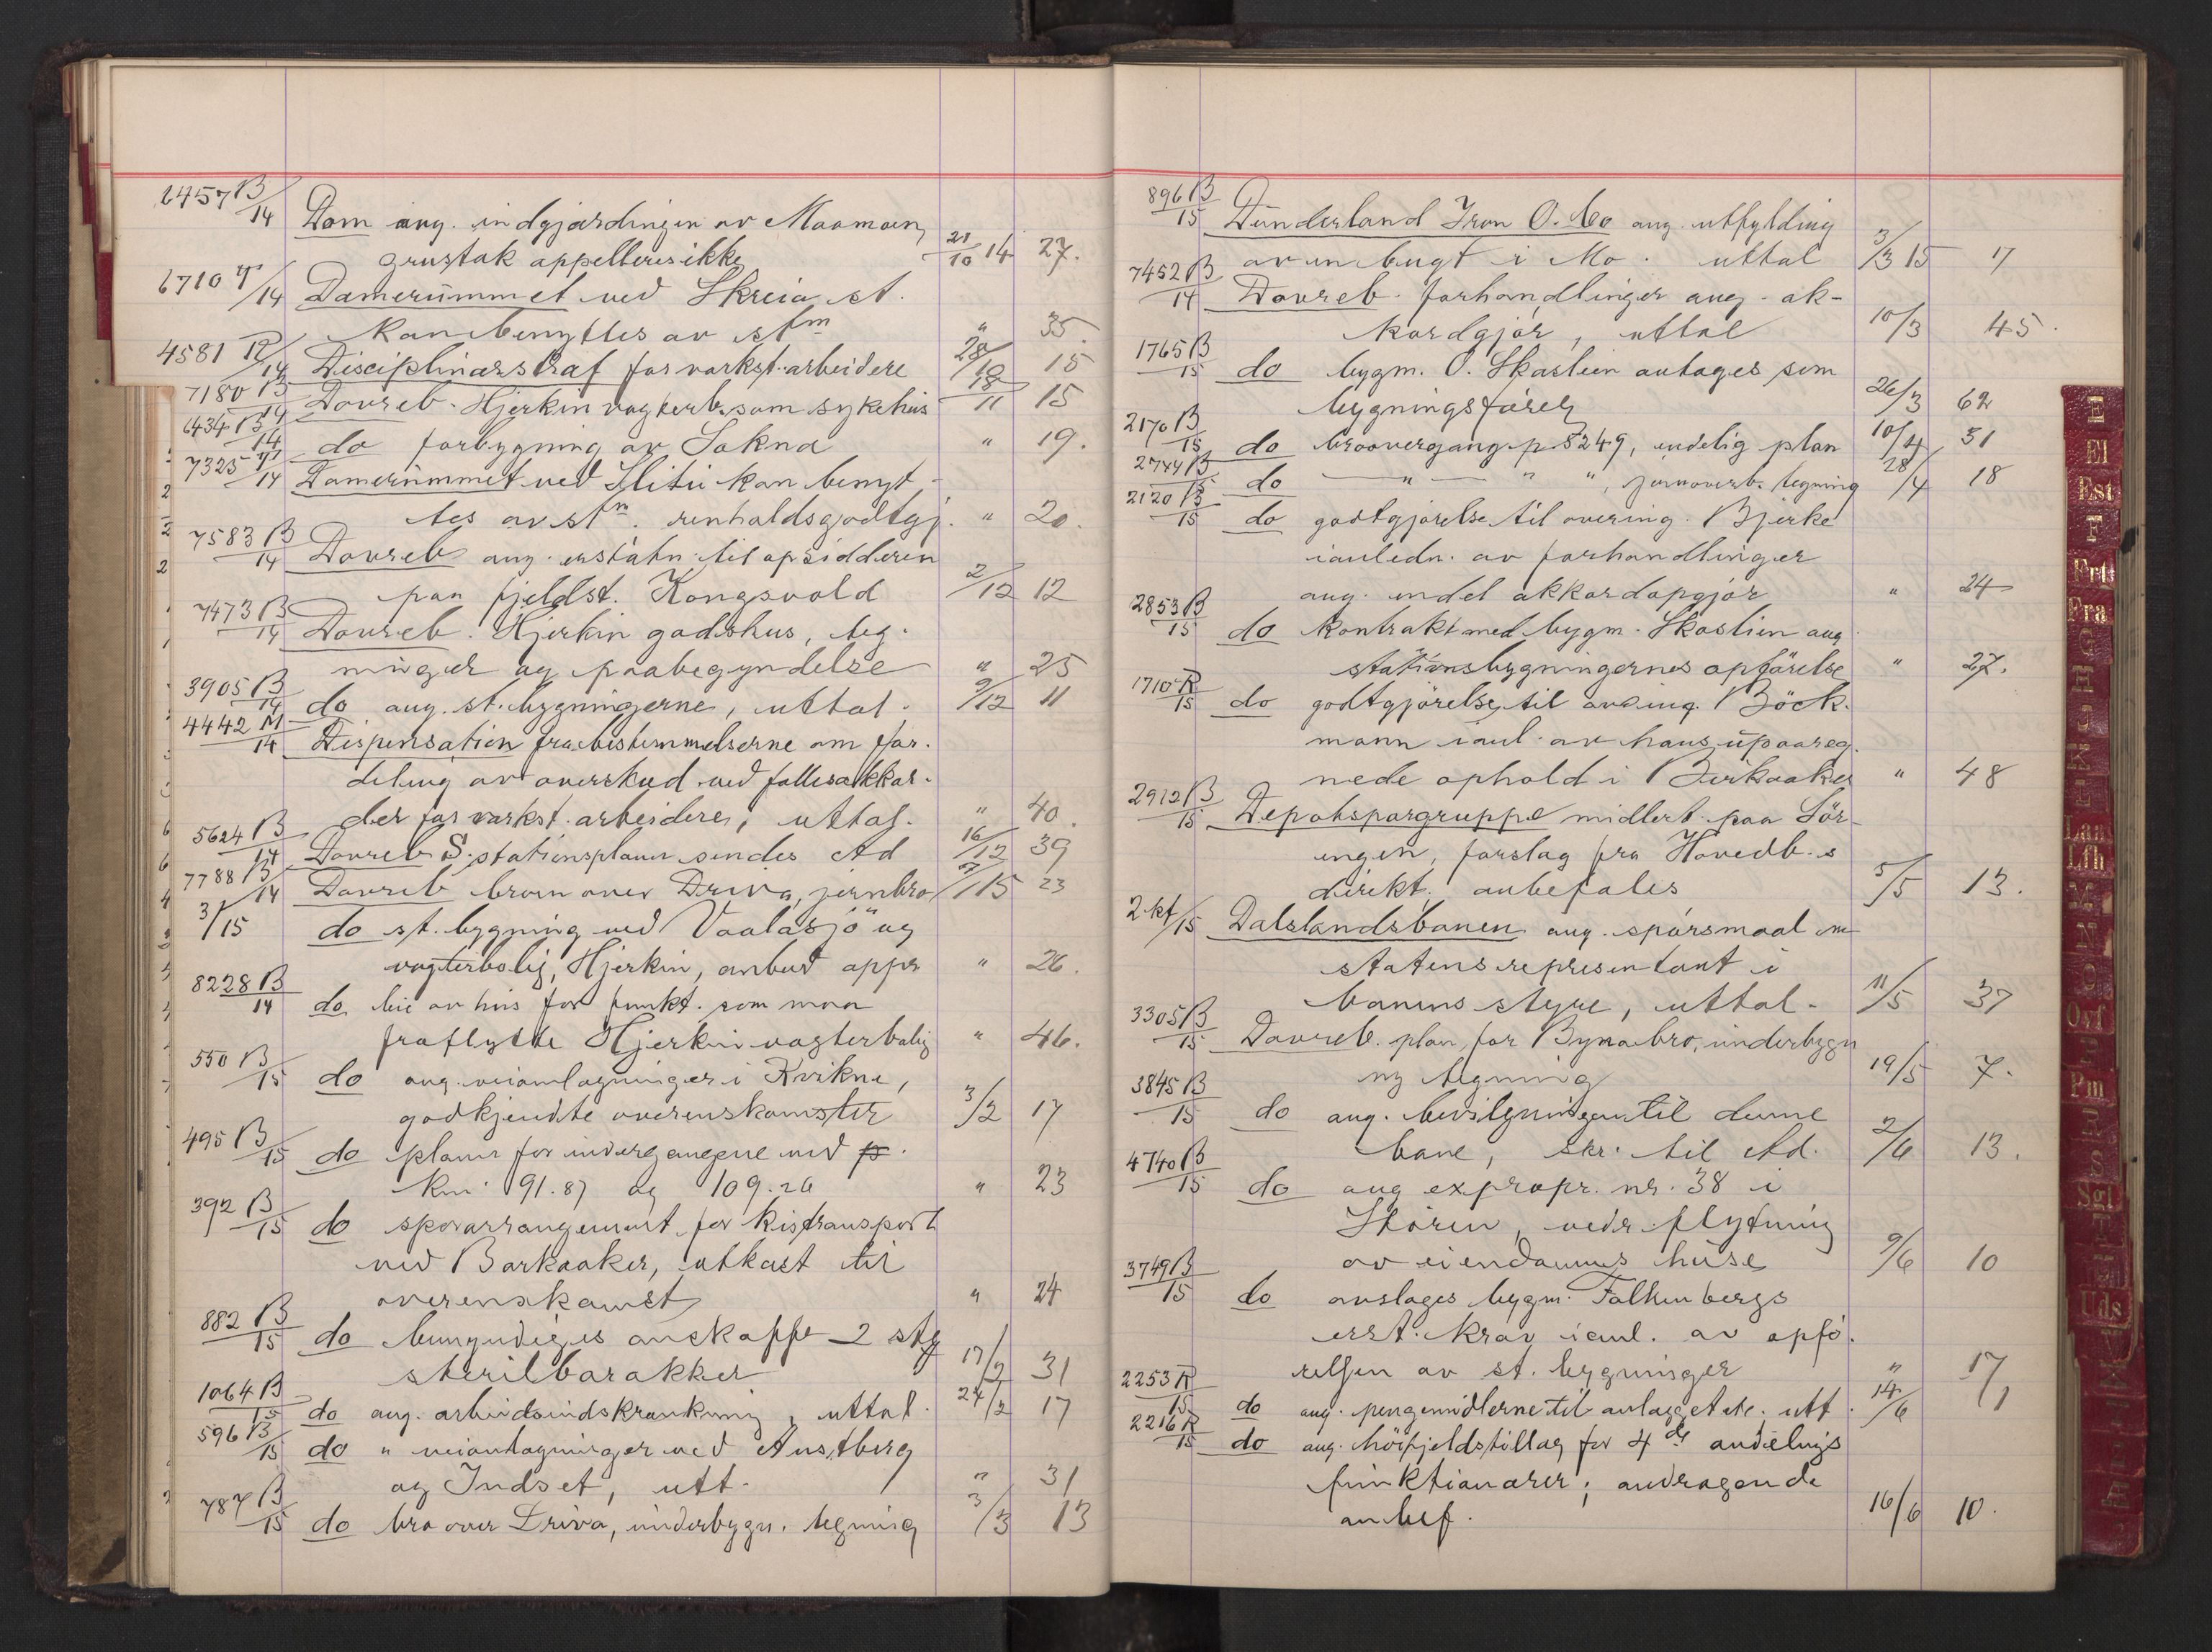 6457 B/14 Dom ang. indgjærdingen av Maamoen
grustak appelleres ikke 21/10 14 27.
6710 T/14 Damerummet ved Skreia st.
kan benyttes av stm " 35.
4581 R/14 Disciplinærstraf for verkst. arbeidere 28/10 15
7180 B/14 Dovreb. Hjerkin vogterb. som sykehus 18/11 15
6434 B/14 do forbygning av Sokna " 19.
7325 T/14 Damerummet ved Slitu kan benyt-
tes av stn. renholdsgodtgj. " 20.
7583 B/14 Dovreb ang. erstatn. til opsidderen
paa fjeldst. Kongsvold 2/12 12
7473 B/14 Dovreb. Hjerkin godshus, teg-
ninger og paabegyndelse " 25
3905 B/14 do ang. st. bygningerne, uttal. 9/12 11
4442 M/14 Dispensation fra bestemmelserne om for-
deling av overskud ved fællesakkor-
der for verkst. arbeidere, uttal. " 40.
5624 B/14 Dovreb S. stationsplaner sendes Ad 16/12 39
7788 B/14 Dovreb broen over Driva, jernbro /1 15 23
3/15 do st. bygning ved Vaalåsjö og
vogterbolig, Hjerkin, anbud appr " 26.
8228 B/14 do leie av hus for funkt. som maa
fraflytte Hjerkin vogterbolig " 46.
550 B/15 do ang. veiomlægninger i Kvikne,
godkjendte overenskomster 3/2 17
495 B/15 do planer for undergangene ved p.
Km. 91.87 og 109.26 " 23
392 B/15 do sporarrangement for kistransport
ved Borkaaker, utkast til
overenskomst " 24
882 B/15 do bemyndiges anskaffe 2 stk
sterilbarakker 17/2 31
1064 B/15 do ang. arbeidsindskrænkning, uttal. 24/2 17
596 B/15 do " veiomlægninger ved Austberg
og Indset, utt. " 31
787 B/15 do bro over Driva, underbygn. tegning 3/3 13
896 B/15 Dunderland Iron O. Co ang. utfylding
av en bugt i Mo. uttal 3/3 15 17
7452 B/14 Dovreb. forhandlinger ang. ak-
kordgjör, uttal 10/3 45.
1765 B/15 do bygm. O. Skaslien antages som
bygningsförer 26/3 62
2170 B/15 do broovergang p. 5249, endelig plan 10/4 31
2744 B/15 do — " — " ", jernoverb. tegning 28/4 18
2120 B/15 do godtgjörelse til avd.ing. Bjerke
i anledn. av forhandlinger
ang. endel akkordopgjör " 24
2853 B/15 do kontrakt med bygm. Skaslien ang
stationsbygningernes opförelse " 27.
1710 R/15 do godtgjörelse til avd.ing. Böck-
mann i anl. av hans upaareg-
nede ophold i Berkaaker " 48
2912 B/15 Depotsporgruppe midlert. paa Lör-
engen, forslag fra Hovedb.s
direkt. anbefales 5/5 13.
2 kt/15 Dalslandsbanen ang. spörsmaal om
statens repræsentant i
banens styre, uttal. 11/5 37
3305 B/15 Dovreb. plan for Byna bro, underbygn
ny tegning 19/5 7.
3845 B/15 do ang. bevilgningen til denne
bane, skr. til Ad. 2/6 13.
4740 B/15 do ang expropr. nr. 38 i
Stören, vedr. flytning
av eiendommens huse 9/6 10
3749 B/15 do avslages bygm. Falkenbergs
erst. krav i anl. av opfö-
relsen av st. bygninger " 17
2253 R/15 do ang. pengemidlerne til anlægget etc. utt. 14/6 1
2216 R/15 do ang. höifjeldstillæg for 4de avdelings
funktionærer; andragende
anbef. 16/6 10.
E
El
Est
F
Frt
Fra
G
H
J
K
L
Laa
Lfh
M
N
O
Ovf
P
Pm
R
S
Sgl
T
U
Uds
V